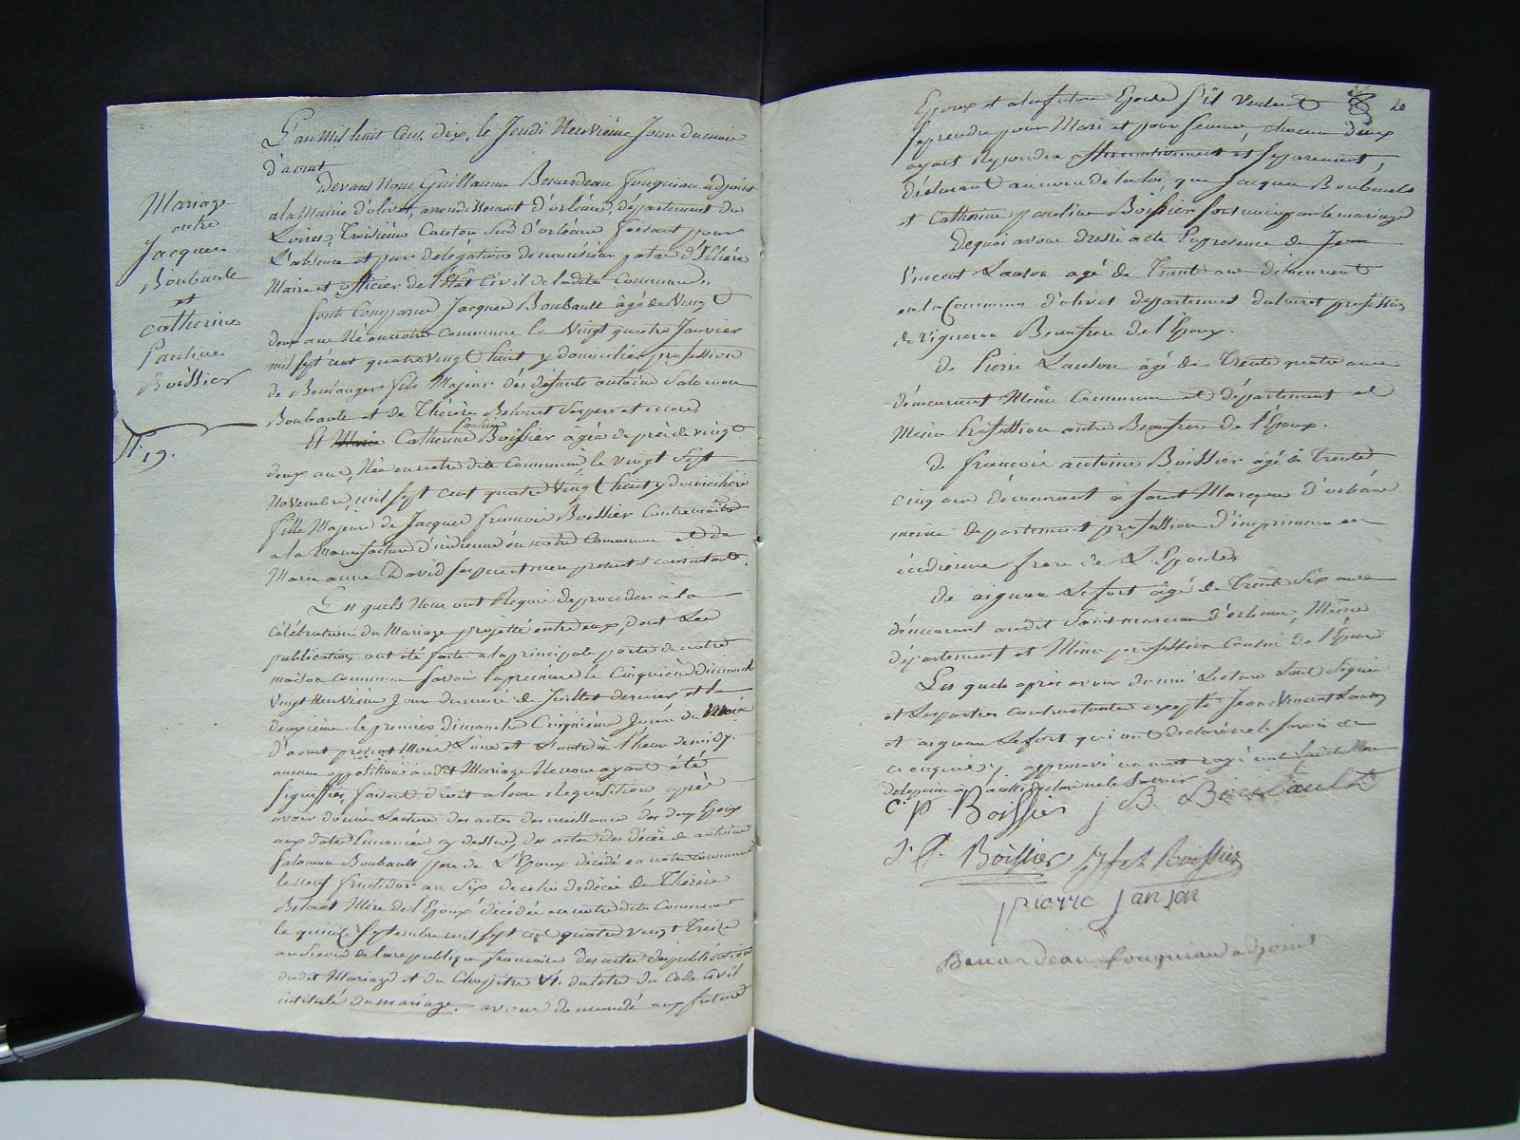 Mariage
entre
Jacques
Boubault
et
Catherine
Pauline
Boissier
N.° 19.
L'an Mil huit Cens dix, le Jeudi Neuvième Jour du mois
d'aoust
Devant Nous Guillaume Benardeau Jouquiau adjoint
a la Mairie d'olivet, arrondissement d'orléans, département du
Loiret, Troisième Canton Sud d'orléans faisant pour
L'absence et par délégation de monsieur
Maire et officier de l'État Civil de ladite Commune.
Sont Comparus Jacques Boubault âgé de Vingt
deux ans Né en notre Commune le Vingt quatre Janvier
mil sept cent quatre vingt huit y domicilié profession
de Boulanger fils Majeur des défunts antoine Salomon
Boubault et de Thérèse Belouet Ses pere et mere
Et Marie Catherine Pauline Boissier âgée de près de vingt
deux ans, Née en notre dite Commune le vingt Sept
Novembre mil sept cent quatre vingt huit y domiciliée
fille Majeure de Jacques francois Boissier Contremaitre
a la Manufacture d'indienne en notre Commune et de
Marie anne David ses pere et mere présents et consentants.
Les quels Nous ont Requis de proceder à la
célébration du Mariage projetté entre eux, dont Les
publications ont été faites a la principale porte de notre
maison commune savoir la première le Cinquième dimanche
Vingt Neuvième Jour de Juillet dernier et la
deuxième le premier dimanche Cinquième Jour du Mois
d'aoust present à l'heure de midy.
aucune opposition audit Mariage Ne nous ayant été
signifiée, faisant droit a leur Requisition, après
avoir donné Lecture des actes de naissance des deux Epoux
aux dates Enoncées cy dessus, des actes de décès de antoine
Salomon Boubault pere de L'Epoux décédé en notre Commune
le neuf fructidor an Six de celui de décès de Thérèse
Belouet Mère de l'Epoux décédée en notre dite Commune
le quinze Septembre mil sept cent quatre vingt Treize
de la republique francaise des actes de publication
dudit Mariage et du Chapitre VI. du titre du Code Civil
intitulé du mariage. avons demandé aux futurs
20
Epoux et a la future Epouse s'il veulent
se prendre pour Mari et pour femme, chacun d'eux
ayant répondu affirmativement et séparement,
déclarons au nom de la loi, que Jacques Boubault
et Catherine pauline Boissier sont unis par le mariage
De quoi avons dressé acte En presence de Jean
Vincent Lanson agé de Trente ans démeurant
en la Commune d'olivet département du loiret profession
de Vigneron Beaufrere de l'Epoux.
de Pierre Lanson âgé de Trente quatre ans
démeurant Même Commune et département et
Même Profession autre Beaufrere de l'Epoux.
de francois antoine Boissier âgé de Trente
cinq ans démeurant à Saint Marceau d'orléans
même département profession d'imprimeur en
indienne frere de L'Epouse
de aignan Lefort âgé de Trente Six ans
démeurant audit Saint marceau d'orléans, Même
département et Même profession Cousin de l'Epouse
Les quels après avoir donné Lecture Sont Signé
et Les parties contractantes excepté Jean Vincent Lanson
et aignan Lefort qui ont déclaré ne le savoir de
ce enquis approuvé un mot rayé
c.p. Boissier J B. Boubault
J. f. Boissier f A Boissier
pierre Janson
Benardeau Jouquiau adjoint